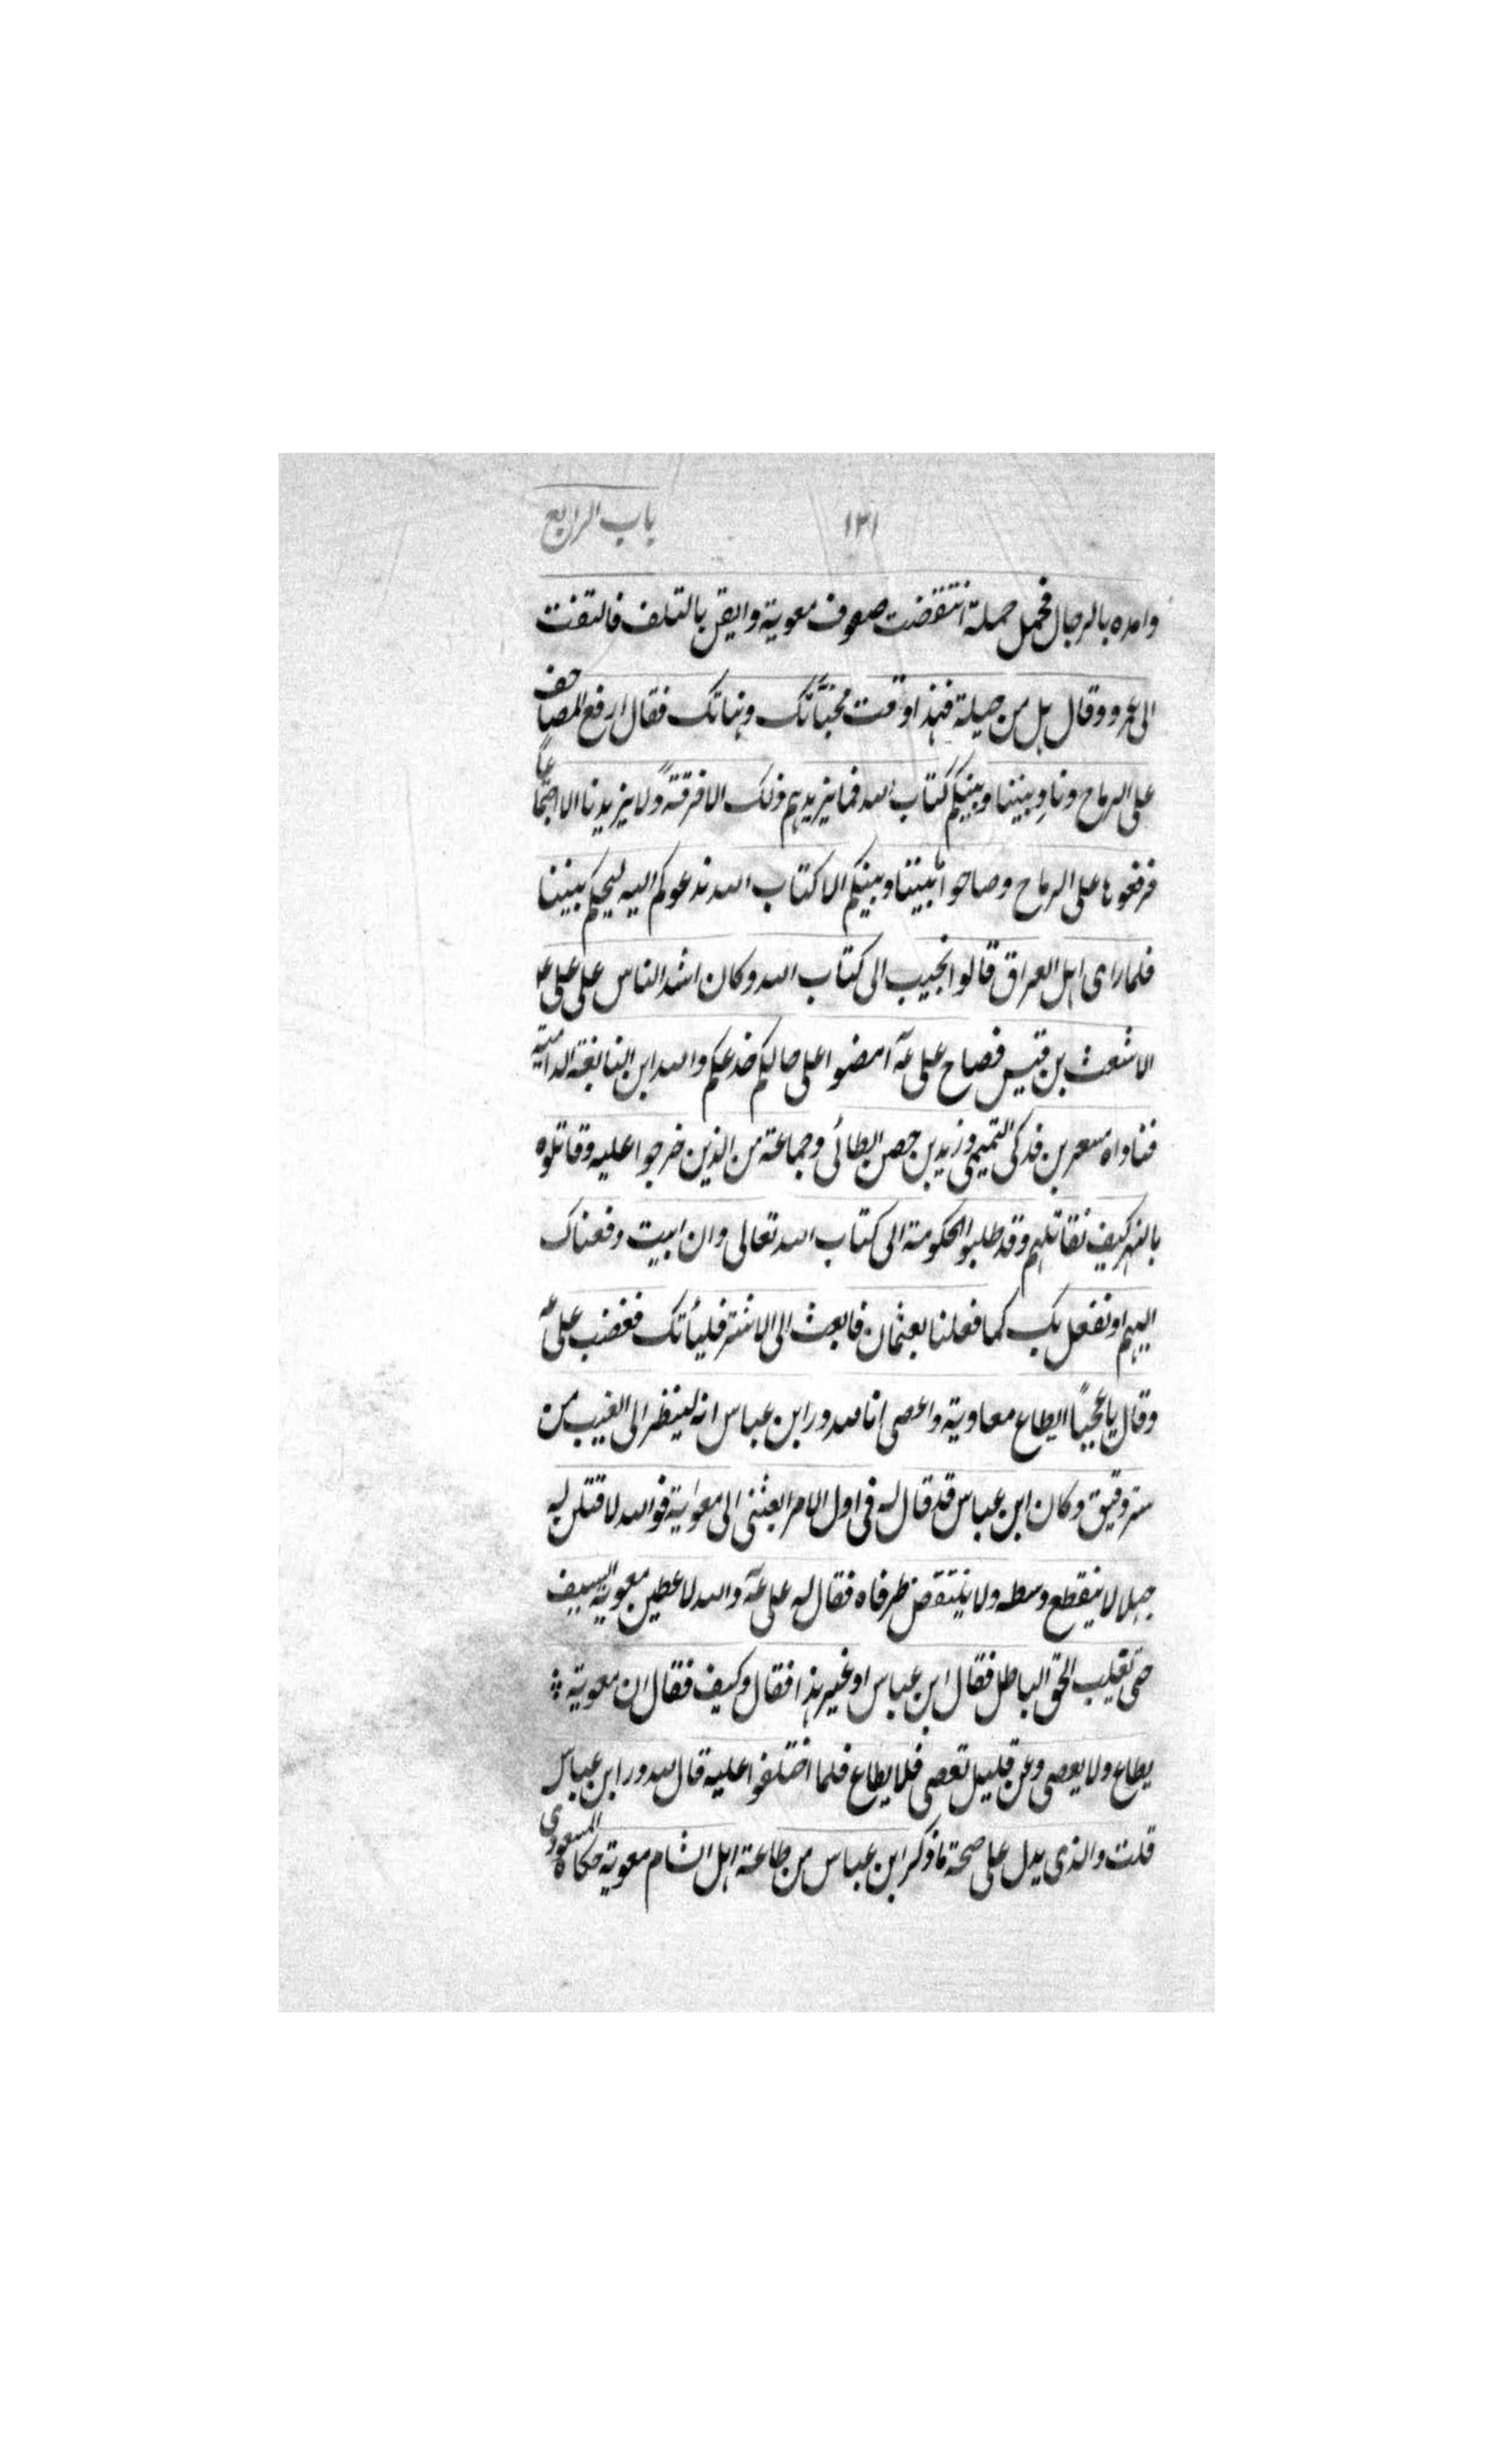 باب الرابع ١٣١
وامده بالرجال فحمل حملة انتقضت صفوف معوية وايقن بالتلف فالتفت
الى عمرو وقال هل من حيلة فهذا وقت مخبّآتك وهناتك فقال ارفع المصاحف
على الرماح وناد بيننا وبينكم كتاب الله فما يزيدهم ذلك الا فرقةً ولا يزيدنا الا اجتماعاً
فرفعوها على الرماح وصاحوا بيننا وبينكم الا كتاب الله ندعوكم اليه ليحكم بيننا
فلما راى اهل العراق قالوا نجيب الى كتاب الله وكان اشد الناس على على ع
الاشعث بن قيس فصاح على عه امضوا على حالكم خدعكم والله ابن النابغة الدامية
فناداه مسعر بن فدكى التميمى وزيد بن حصن الطائى وجماعة من الذين خرجوا عليه وقاتلوه
بالنهر كيف نقاتلهم وقد طلبوا الحكومة الى كتاب الله تعالى وان ابيت دفعناك
اليهم او نفعل بك كما فعلنا بعثمان فابعث الى الاشتر فليأتك فغضب على ع
وقال يا عجباً ايطاع معاوية واعصى انا لله در ابن عباس انه لينظر الى الغيب من
ستر رقيق وكان ابن عباس قد قال له فى اول الامر ابعثنى الى معاوية فوالله لاقتلن له
حبلا لا ينقطع وسطه ولا ينتقض طرفاه فقال له على عه والله لاعطين معوية السيف
حتى تغلب الحق الباطل فقال ابن عباس او غير هذا فقال وكيف فقال ان معوية
يطاع ولا يعصى وعن قليل تعصى فلا يطاع فلما اختلفوا عليه قال لله در ابن عباس
قلت والذى يدل على صحة ما ذكر ابن عباس من طاعة اهل الشام معوية حكاه المسعودى